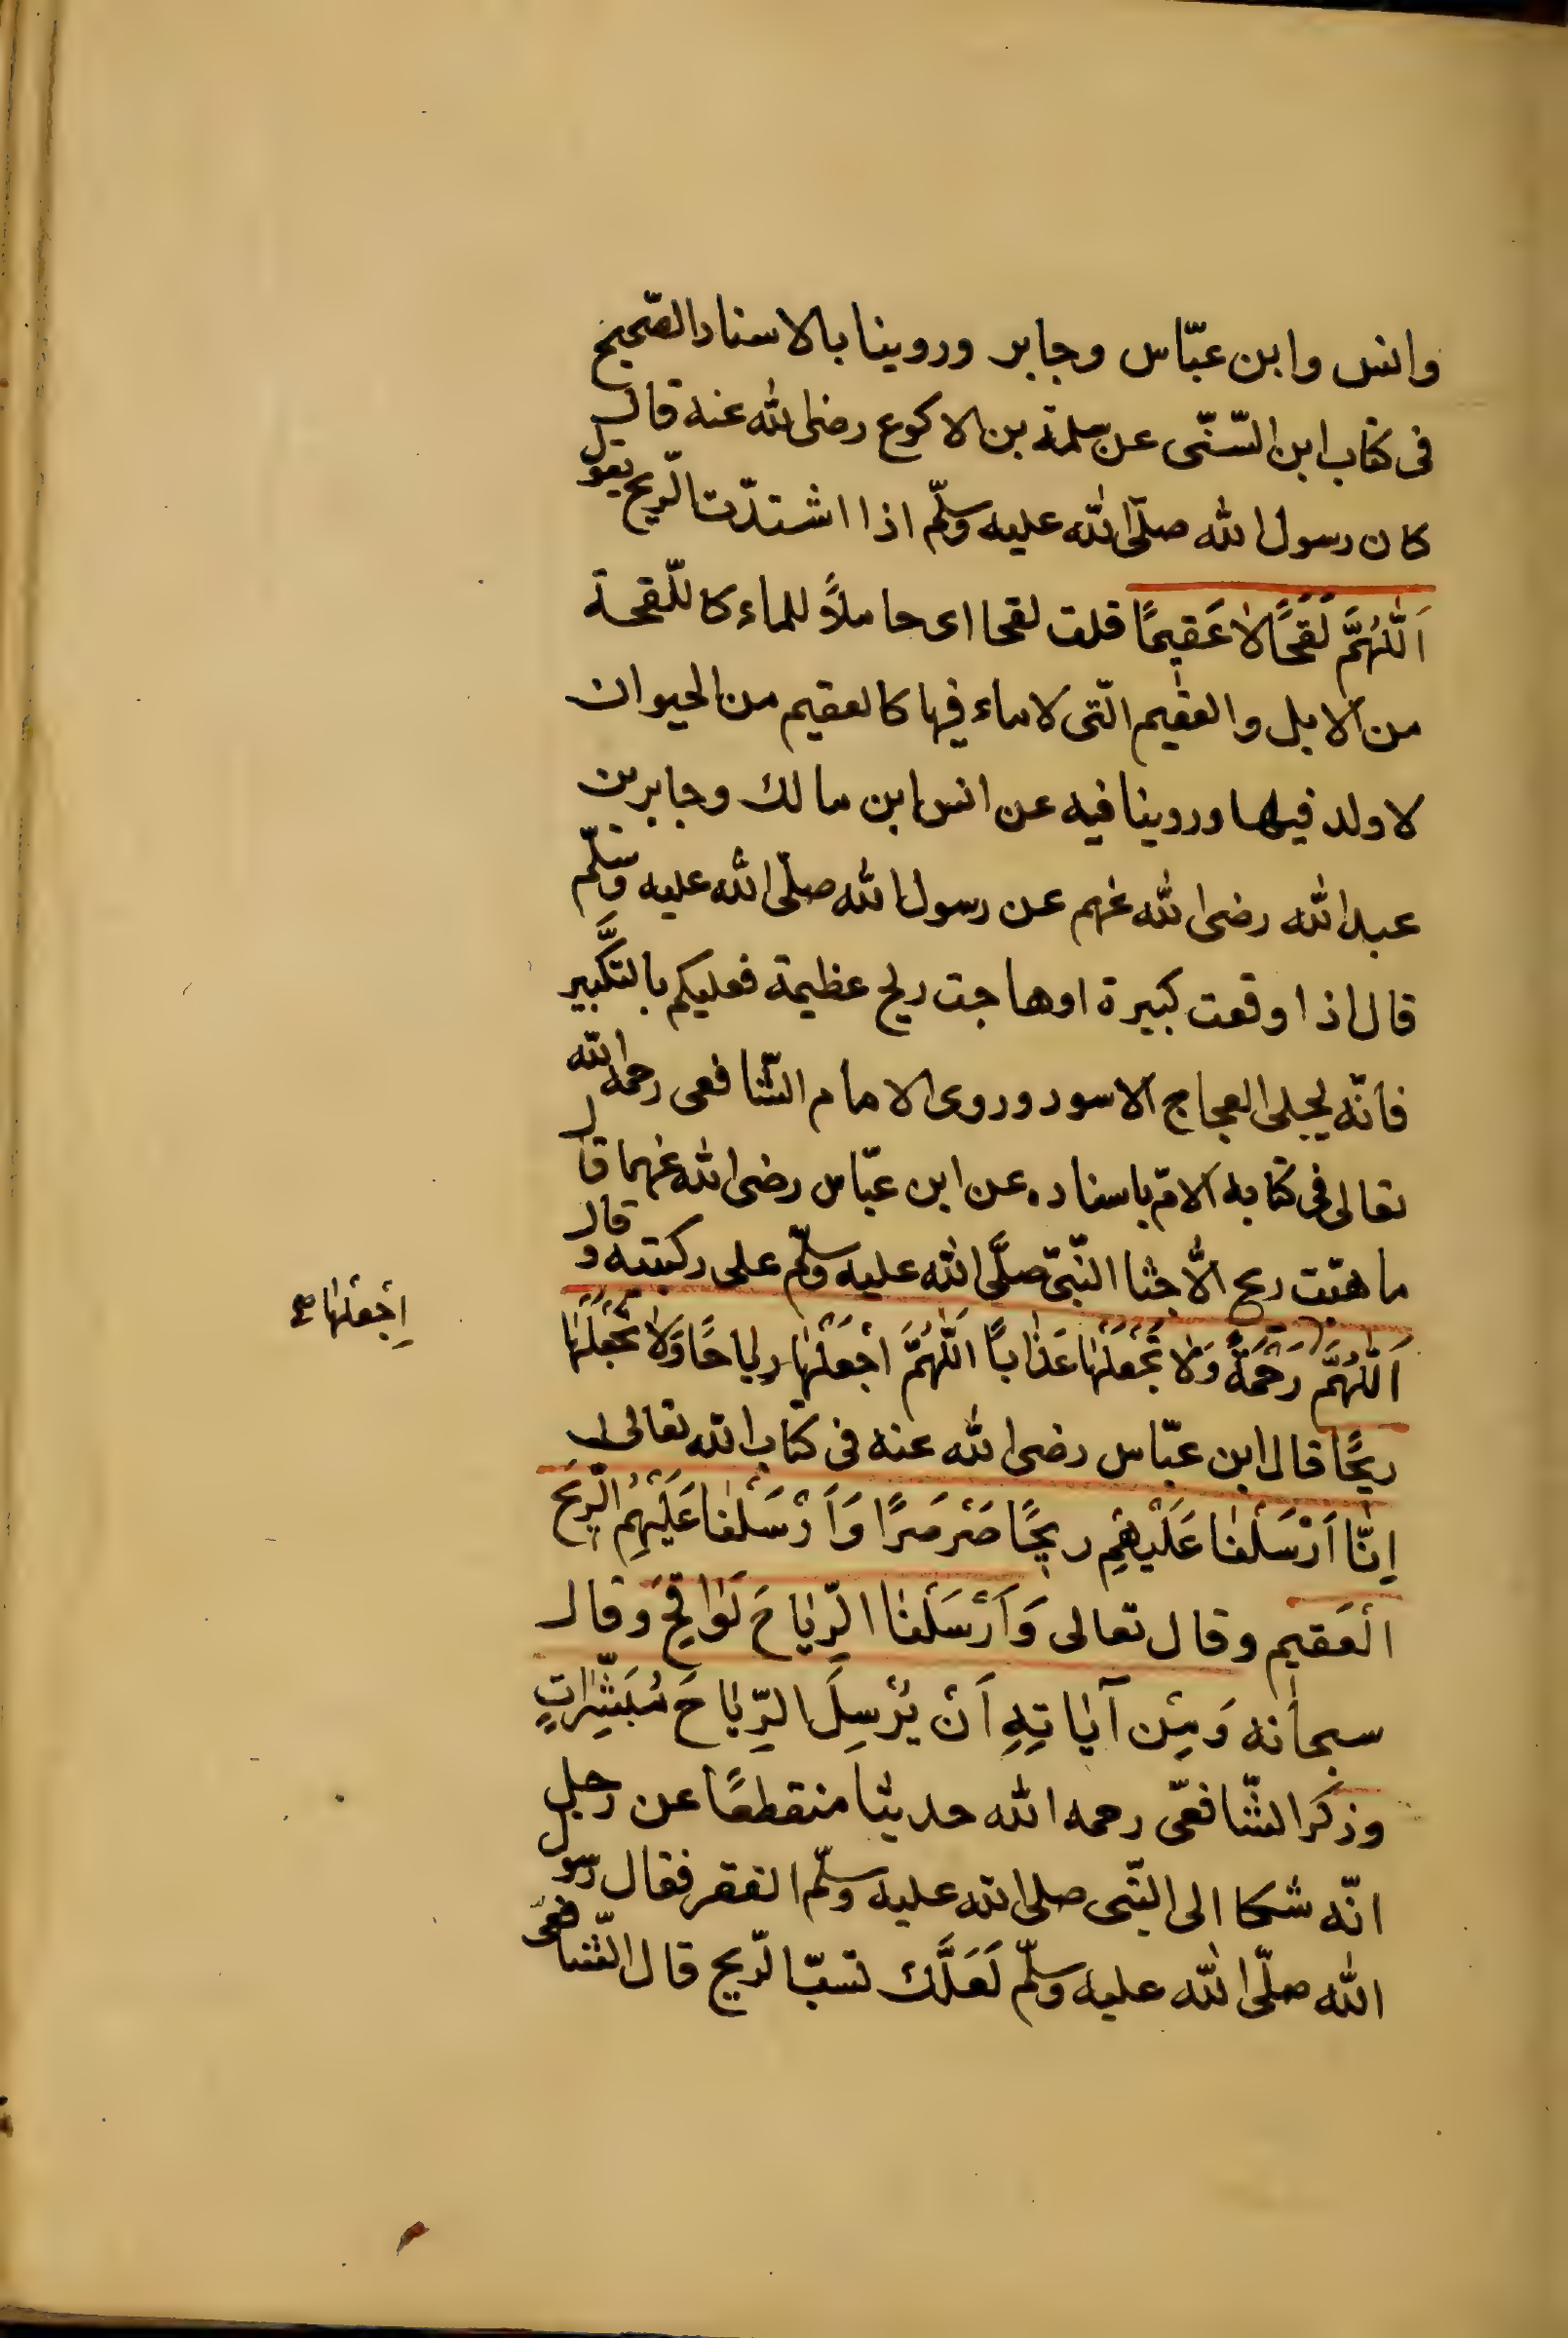 وانس وابن عبّاس وجابر وروينا بالاسناد الصّحيح
فى كتاب ابن السّنّى عن سلمة بن الاكوع رضى الله عنه قال
كان رسول الله صلّى الله عليه وسلّم اذا اشتدّت الرّيح يقول
اَللّٰهُمَّ لَقَحًا لاٰ عَقيمًا قلت لقحا اى حاملاً للماء كاللّقحة
من الابل والعقيم الّتى لا ماء فيها كالعقيم من الحيوان
لا ولد فيها وروينا فيه عن انس ابن مالك وجابر بن
عبد الله رضى الله عنهم عن رسول الله صلّى الله عليه وسلّم
قال اذا وقعت كبيرة او هاجت ريح عظيمة فعليكم بالتّكبير
فانّه يجلى العجاج الاسود وروى الامام الشّافعى رحمه الله
تعالى فى كتابه الامّ باسناده عن ابن عبّاس رضى الله عنهما قال
ما هبّت ريح الاّ جثا النّبىّ صلَّى الله عليه وسلّم على ركبتيه وقال
اَللّٰهُمَّ رَحْمَةً وَلاٰ تَجْعَلْهٰا عَذٰابًا اَللّٰهُمَّ اجْعَلْهٰا رياحًا وَلاٰ تَجْعَلْهٰا
اِجْعَلْهٰا صح
ريحًا قال ابن عبّاس رضى الله عنه فى كتاب الله تعالى
اِنّٰا اَرْسَلْنٰا عَلَيْهِم ريحًا صَرصَرًا وَاَرْسَلْنٰا عَلَيْهِمُ الرّيحَ
الْعَقيم وقال تعالى وَاَرْسَلْنٰا الرِّيٰاحَ لَوٰاقِحَ وقال
سبحانه وَمِنْ آيٰاتِهِ اَنْ يُرْسِلَ الرِّيٰاحَ مُبَشِّرٰاتٍ
وذكر الشّافعّى رحمه الله حديثا منقطعًا عن رجل
انّه شكا الى النّبى صلى الله عليه وسلّم الفقر فقال رسول
الله صلّى الله عليه وسلّم لَعَلَّك تسبّ الرّيح قال الشّافعىّ